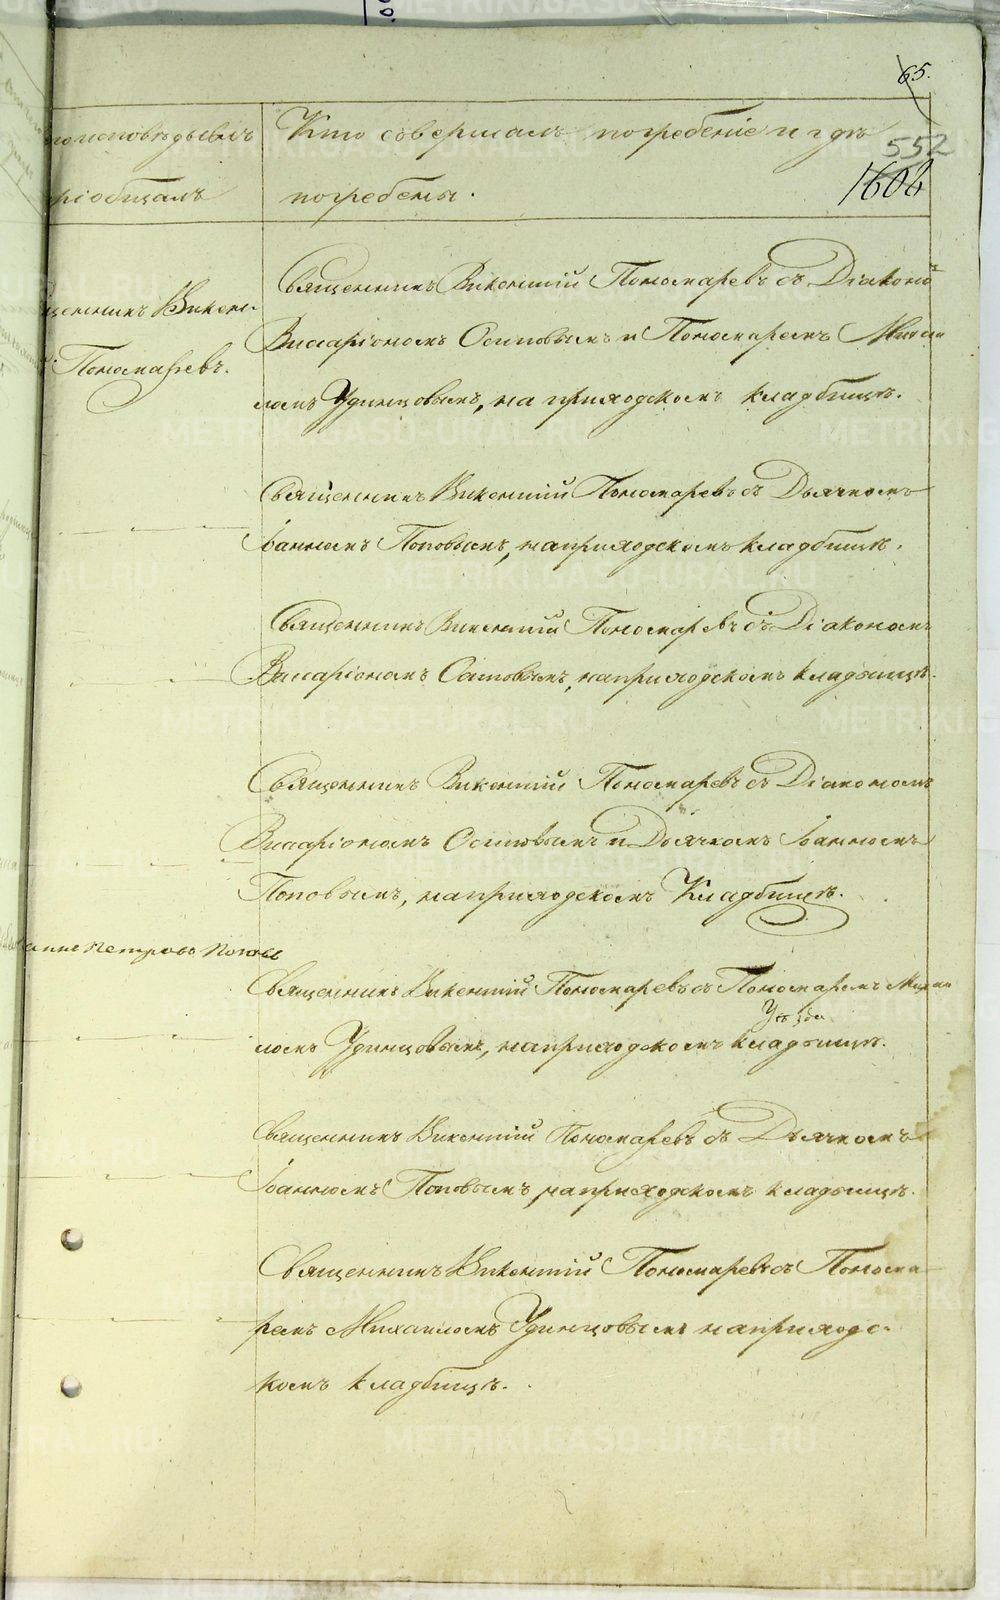 65.
исповѣдывалъ
Кто совершалъ погребеніе и гдѣ
552
1602
пріобщалъ
погребены.
Священникъ Викентій Пономаревъ съ Діакономъ
щенникъ Викен-
Виссаріономъ Осиповымъ и Пономаремъ Михаи
Пономаревъ.
ломъ Удинцовымъ, на приходскомъ кладбищѣ.
Священникъ Викентій Пономаревъ съ Дьячкомъ
Іоанномъ Поповымъ, на приходскомъ кладбищѣ.
Священникъ Викентій Пономаревъ съ Діакономъ
Виссаріономъ Осиповымъ, на приходскомъ кладбищѣ.
Священникъ Викентій Пономаревъ съ Діакономъ
Виссаріономъ Осиповымъ и Дьячкомъ Іоанномъ
Поповымъ, на приходскомъ Кладбищѣ.
Петровъ Поповъ
Священникъ Викентій Пономаревъ съ Пономаремъ Михаи
ломъ Удинцовымъ, на приходскомъ кладбищѣ.
Священникъ Викентій Пономаревъ съ Дьячкомъ
Іоанномъ Поповымъ на приходскомъ кладбищѣ.
Священникъ Викентій Пономаревъ съ Понома
ремъ Михаиломъ Удинцовымъ на приходс-
комъ кладбищѣ.
METRIKI.GASO-URAL.RU